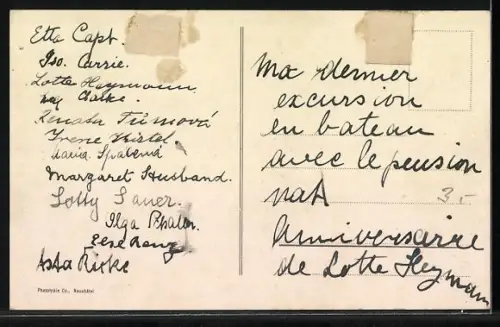 Etta Capt.
Iso. Carrie.
Lotte Heymann
Renata Tumová
Irene Kistel
Maria
Margaret Husband.
Lotty Sauer.
Ilga
Else
Asta Ricke
Phototypie Co., Neuchâtel
Ma dernier
excursion
en bateau
avec le pension
nat
3.-
Anniversairie
de Lotte Heymann